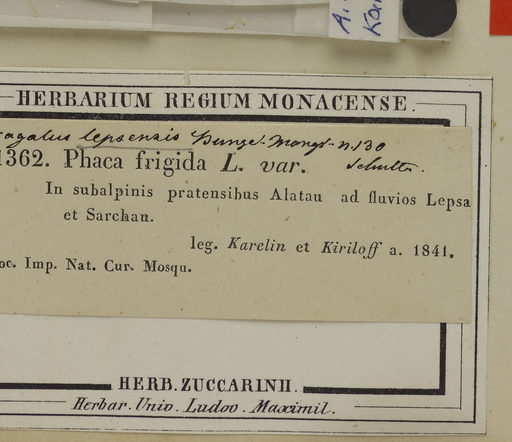 A.
Kar
HERBARIUM REGIUM MONACENSE.
ragalus lepsensis Bunge. Mongr. n. 130
1362. Phaca frigida L. var.
In subalpinis pratensibus Alatau ad fluvios Lepsa
et Sarchan.
leg. Karelin et Kiriloff a. 1841.
oc. Imp. Nat. Cur. Mosqu.
HERB. ZUCCARINII.
Herbar. Univ. Ludov. Maximil.